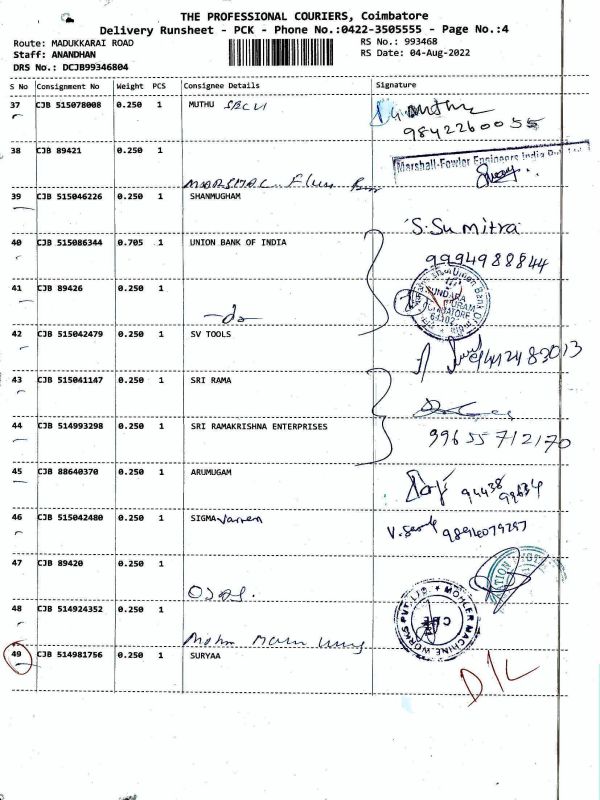 THE PROFESSIONAL COURIERS, Coimbatore
Delivery Runsheet - PCK - Phone No.:0422-3505555 - Page No.:4
Route: MADUKKARAI ROAD RS No.: 993468
Staff: ANANDHAN RS Date: 04-Aug-2022
DRS No.: DCJB99346804
S No Consignment No Weight PCS Consignee Details Signature
37 CJB 515078008 0.250 1 MUTHU
9842260055
38 CJB 89421 0.250 1
Marshall-Fowler Engineers India
39 CJB 515046226 0.250 1 SHANMUGHAM
S.Sumitra
40 CJB 515086344 0.705 1 UNION BANK OF INDIA
9994988844
41 CJB 89426 0.250 1
Union Bank
SUNDARA
-do-
42 CJB 515042479 0.250 1 SV TOOLS
43 CJB 515041147 0.250 1 SRI RAMA
44 CJB 514993298 0.250 1 SRI RAMAKRISHNA ENTERPRISES
99655712170
45 CJB 88640370 0.250 1 ARUMUGAM
46 CJB 515042480 0.250 1 SIGMA
47 CJB 89420 0.250 1
48 CJB 514924352 0.250 1
MOHLER MACHINE WORKS PVT. LTD.
CBE
49 CJB 514981756 0.250 1 SURYAA
D/L